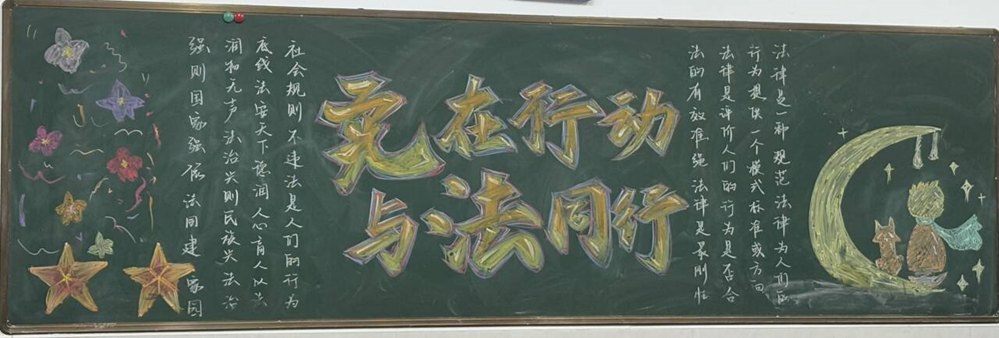 宪在行动
与法同行
法律是一种规范法律为人们的
行为提供一个模式标准或方向
法律是评价人们的行为是否合
法的有效准绳法律是最刚性
社会规则不违法是人们的行为
底线法安天下德润人心育人以法
润物无声法治兴则民族兴法治
强则国家强依法同建家园